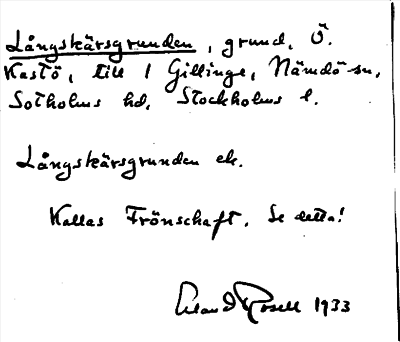 Långskärsgrunden, grund, Ö.
Kastö, till 1 Gillinge, Nämdö sn,
Sotholms hd, Stockholms l.
Långskärsgrunden ek.
Kallas Frönschaft. Se detta!
Erland Rosell 1933